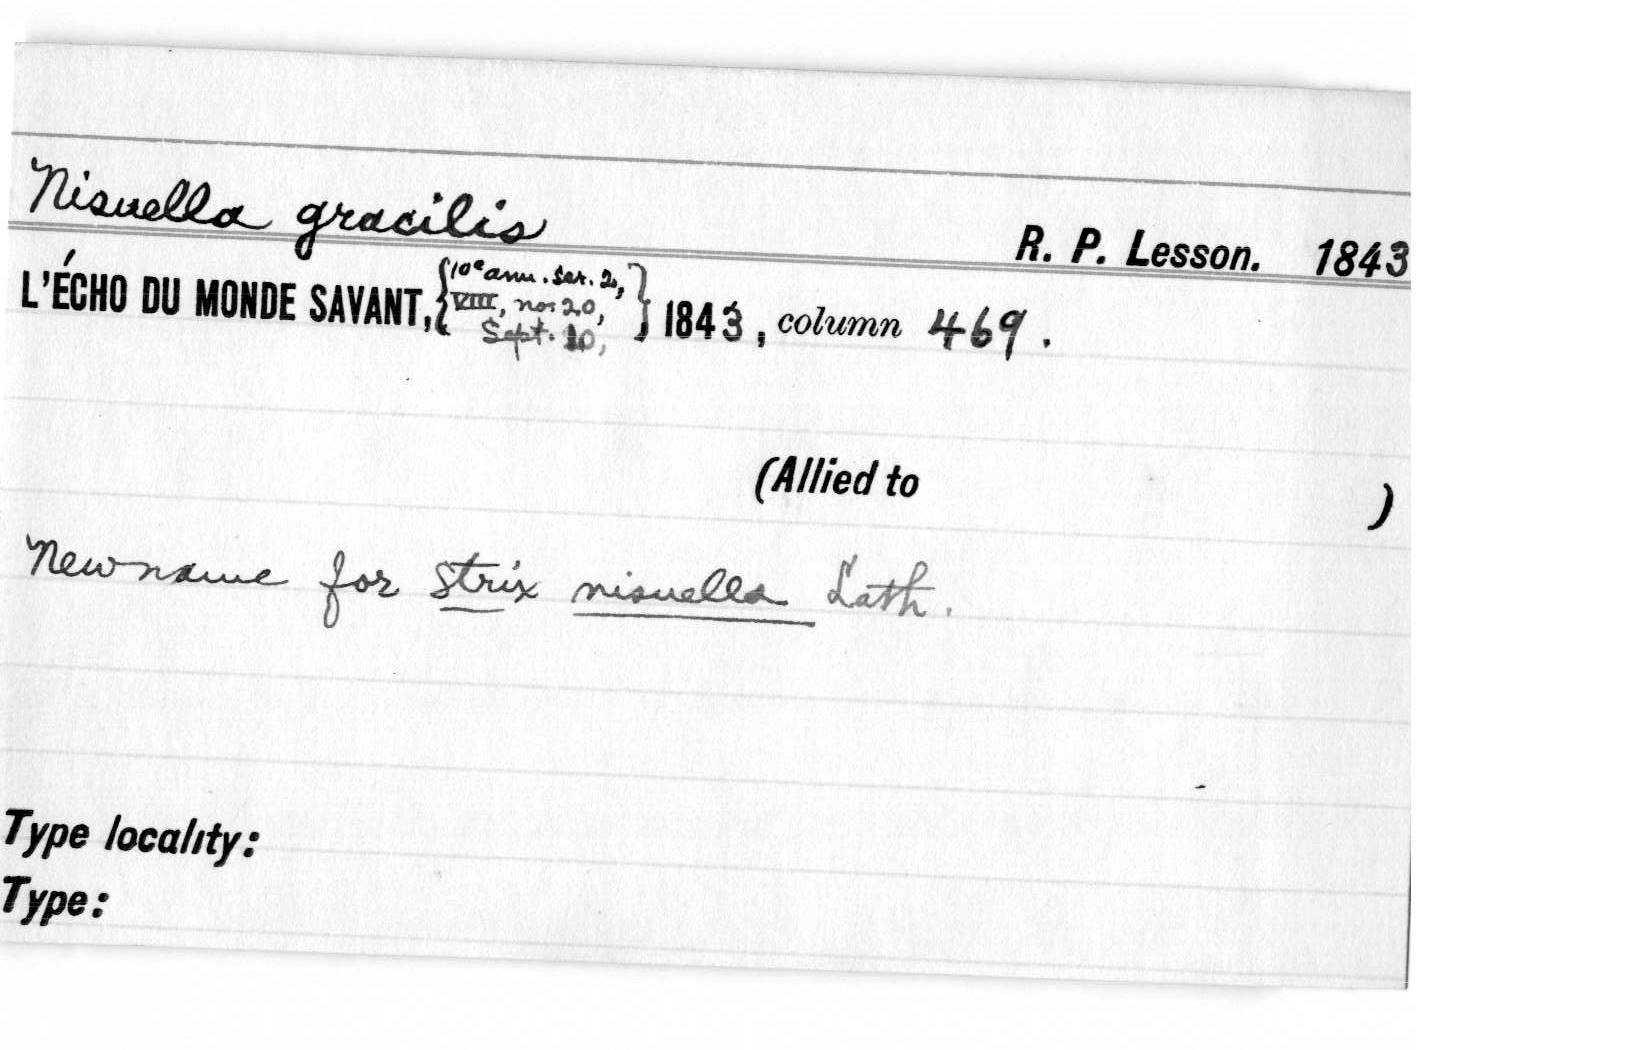 Nisuella gracilis
R. P. Lesson. 1843
L'ÉCHO DU MONDE SAVANT, {10e ann. ser. 2, VIII, no. 20, Sept. 10,} 1843, column 469.
(Allied to )
New name for Strix nisuella Lath.
Type locality:
Type: